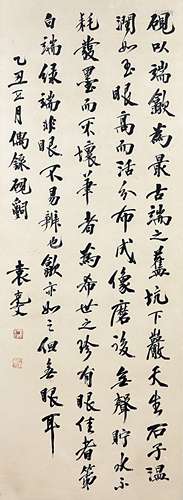 硯以端歙為最古端之舊坑下巖天生石子溫
潤如玉眼高而活分布成像磨後無聲貯水不
耗發墨而不壞筆者為希世之珍有眼佳者第
白端綠端非眼不易辨也歙亦如之但無眼耳
乙丑正月偶錄硯 袁克文